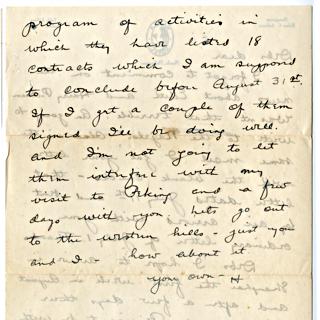 program of activities in
which they have listed 18
contracts which I am supposed
to conclude before August 31st.
If I get a couple of them
signed I'll be doing well.
and I'm not going to let
them interfere with my
visit to Peking and a few
days with you. Lets go out
to the western hills - just you
and I - how about it
your own - H